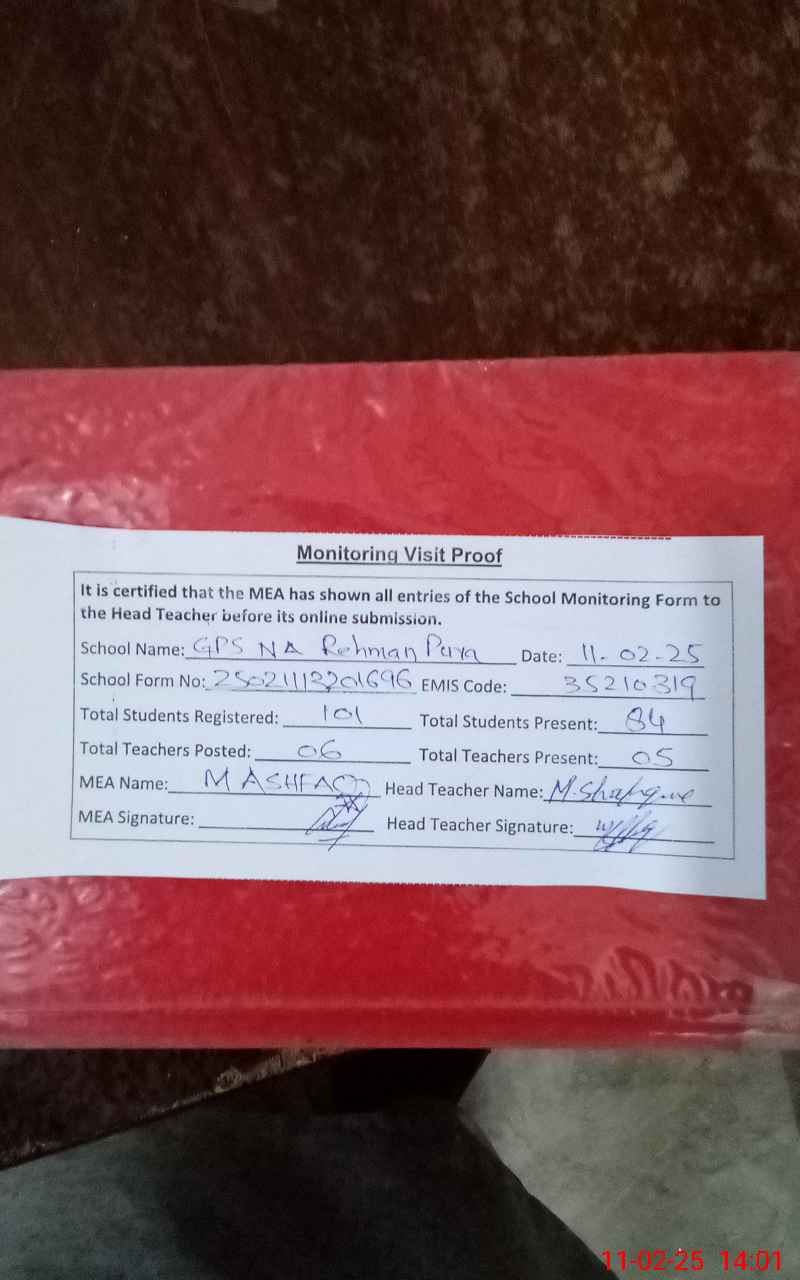 Monitoring Visit Proof
It is certified that the MEA has shown all entries of the School Monitoring Form to
the Head Teacher before its online submission.
School Name: GPS NA Rehman Pura Date: 11-02-25
School Form No: 25021113201696 EMIS Code: 35210319
Total Students Registered: 101 Total Students Present: 84
Total Teachers Posted: 06 Total Teachers Present: 05
MEA Name: M ASHFAQ Head Teacher Name: M. Shafique
MEA Signature: Head Teacher Signature:
11-02-25 14:01